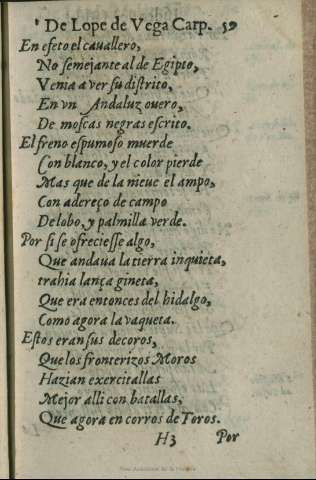 De Lope de Vega Carp. 59
En efeto el cauallero,
No semejante al de Egipto,
Venia a ver su distrito,
En vn Andaluz ouero,
De moscas negras escrito.
El freno espumoso muerde
Con blanco, y el color pierde
Mas que de la nieue el ampo,
Con adereço de campo
De lobo, y palmilla verde.
Por si se ofreciesse algo,
Que andaua la tierra inquieta,
trahia lança gineta,
Que era entonces del hidalgo,
Como agora la vaqueta.
Estos eran sus decoros,
Que los fronterizos Moros
Hazian exercitallas
Mejor alli con batallas,
Que agora en corros de Toros.
H3 Por